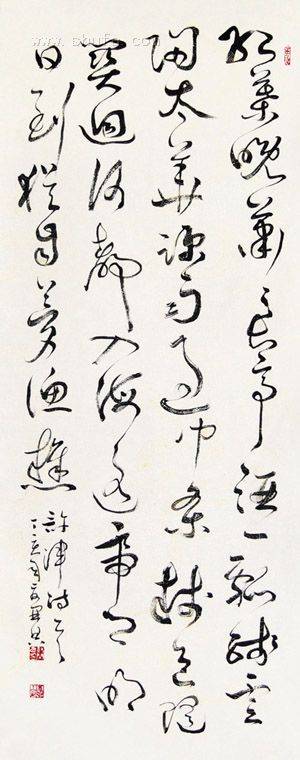 紅葉晚蕭々長亭酒一瓢殘雲
歸太華疏雨過中條樹色隨
關迥河聲入海遙帝鄉明
日到猶自夢漁樵
許渾詩
丁亥